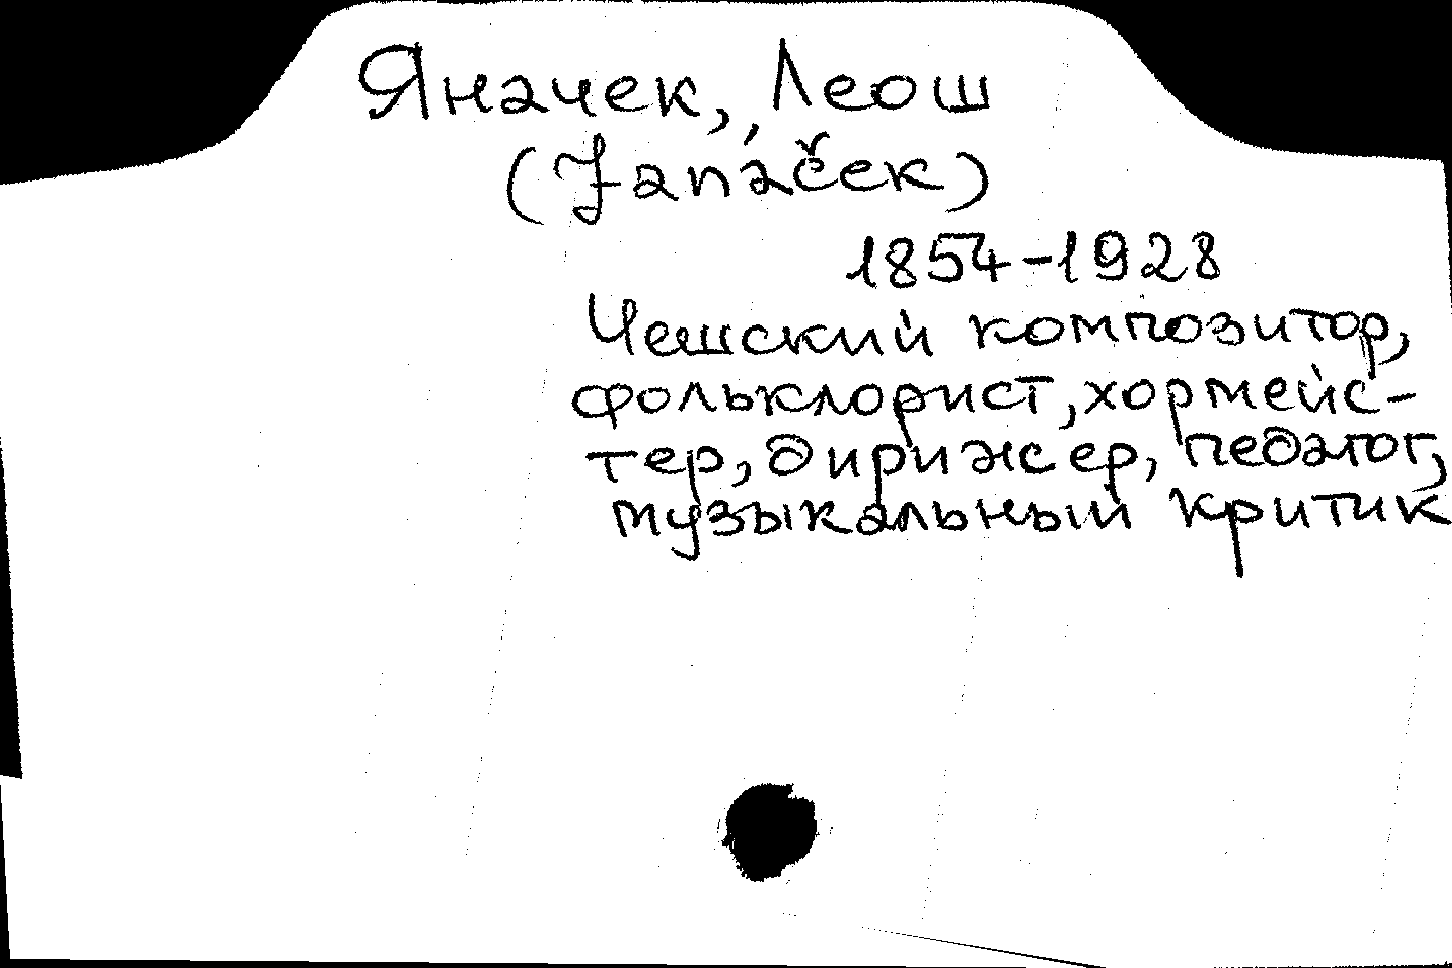 Яначек, Леош
(Janáček)
1854-1928
Чешский композитор,
фольклорист, хормейс-
тер, дирижер, педагог,
музыкальный критик